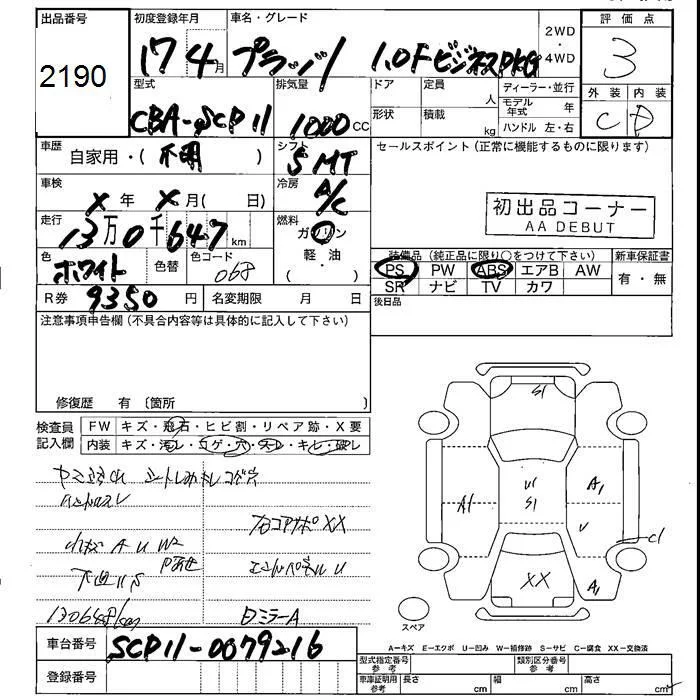 出品番号
2190
初度登録年月
17 4月
車名・グレード
プラッツ 1.0F ビジネスPKG
2WD
・
4WD
評価点
3
外装 内装
C D
型式
CBA-SCP11
排気量
1000 CC
ドア 定員
人
形状 積載
kg
ディーラー・並行
モデル年式 年
ハンドル 左・右
車歴
自家用・(不明)
シフト
5MT
セールスポイント(正常に機能するものに限ります)
車検
X年 X月( 日)
冷房
A/C
初出品コーナー
AA DEBUT
走行
13万0千647km
燃料
ガソリン
軽・油
( )
色
ホワイト
色替
色コード
068
装備品(純正品に限り○をつけて下さい)
新車保証書
PS PW ABS エアB AW
有・無
SR ナビ TV カワ
R券 9350円 名変期限 月 日
後日品
注意事項申告欄(不具合内容等は具体的に記入して下さい)
修復歴 有 〔箇所 〕
検査員
記入欄
FW キズ・飛石・ヒビ割・リペア跡・X要
内装 キズ・汚レ・コゲ・穴・スレ・キレ・破レ
S1
U1
S1
A1
A1
U
A1
C1
XX
スペア
FコアサポXX
日ミラーA
車台番号
SCP11-0079216
登録番号
A-キズ E-エクボ U-凹み W-補修跡 S-サビ C-腐食 XX-交換済
型式指定番号 参考
類別区分番号 参考
車庫証明用 参考
長さ cm
幅 cm
高さ cm